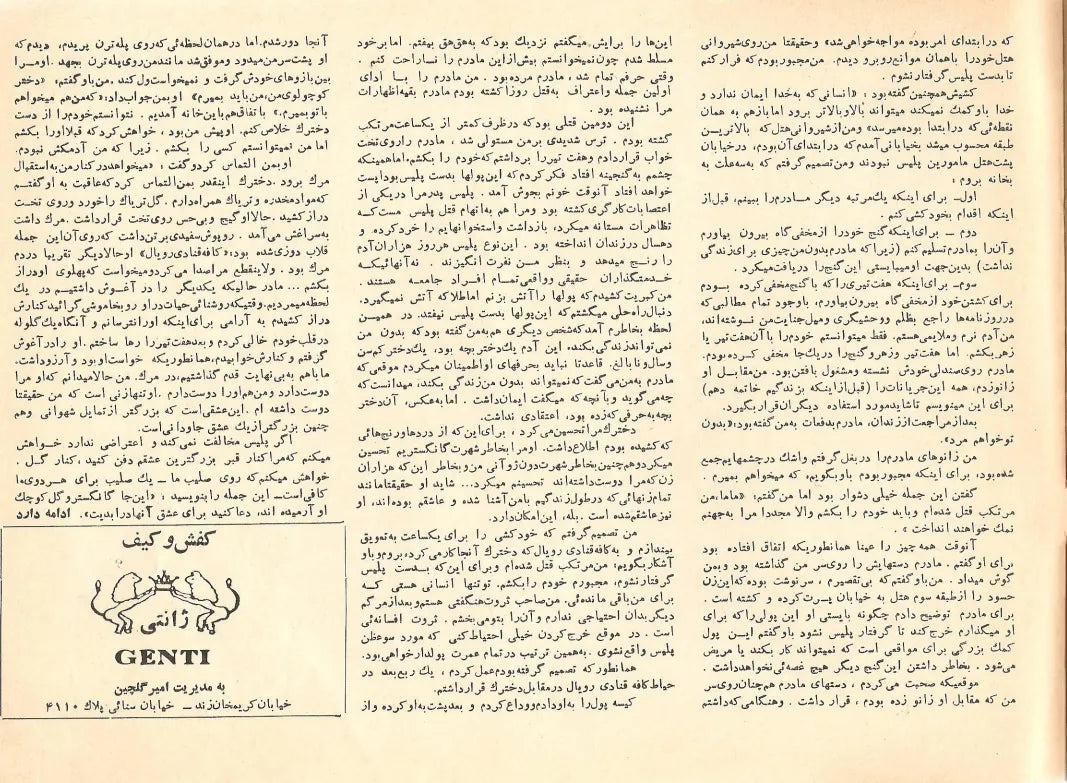 که درابتدای امر بوده مواجه‌خواهی‌شد» وحقیقتا من‌روی‌شیروانی
هتل‌خودرا باهمان موانع‌روبرو دیدم. من‌مجبوربودم که فرارکنم
تا بدست پلیس‌گرفتار نشوم.
کشیش‌همچنین گفته‌بود : «انسانی‌که به‌خدا ایمان ندارد و
خدا باوکمک نمیکند میتواند بالاوبالاتر برود امابازهم به همان
نقطه‌ئی‌که درابتدا بوده‌میرسد» ومن‌از شیروانی‌هتل‌که بالاترین
طبقه محسوب میشد بخیابانی‌آمدم‌که درابتدای‌آن‌بودم، درخیابان
پشت‌هتل مامورین پلیس نبودند ومن‌تصمیم گرفتم که به‌سه‌علت به
بخانه بروم :
اول– برای اینکه یك‌مرتبه دیگر مــادرم‌را ببینم، قبل‌از
اینکه اقدام بخودکشی کنم .
دوم – برای‌اینکه‌گنج خودرا ازمخفی‌گاه بیرون بیاورم
وآن‌را بمادرم‌تسلیم‌کنم (زیرا که مادرم‌بدون‌من‌چیزی برای‌زندگی
نداشت) بدین‌جهت اومیبایستی این‌گنج‌را دریافت‌میکرد .
سوم– برای‌اینکه هفت تیری‌راکه باگنج‌مخفی‌کرده بــودم
برای‌کشتن‌خود ازمخفی‌گاه بیرون‌بیاورم، باوجود تمام مطالبی‌که
درروزنامه‌ها راجع بظلم ووحشیگری ومیل‌جنایت‌من نــوشته‌اند،
من‌آدم نرم وملایمی‌هستم. فقط میتوانستم خودم‌را با‌آن‌هفت‌تیر یا
زهر بکشم. اما هفت‌تیر وزهر وگنج‌را دریک‌جا مخفی کــرده‌بودم.
مادرم روی‌صندلی‌خودش نشسته ومشغول بافتن‌بود. من‌مقابــل او
زانوزدم، همه این‌جریانات‌را (قبل‌ازاینکه بزندگیم خاتمه دهم)
برای این مینویسم تاشایدمورد استفاده دیگران‌قراربگیرد.
بعدازمراجعت‌اززندان، مادرم‌بدفعات به‌من‌گفته‌بود:«بدون
توخواهم مرد».
من زانوهای مادرم‌را دربغل‌گرفتم واشك درچشمهایم‌جمع
شده‌بود، برای اینکه مجبوربودم باوبگویم، که میخواهم بمیرم .
گفتن این جمله خیلی دشوار بود اما من‌گفتم: «ماما،من
مرتکب قتل شده‌ام وباید خودم را بکشم والا مجددا مرا به‌جهنم
نمك خواهند انداخت» .
آنوقت همه‌چیز را عینا همانطوریکه اتفاق افتاده بود
برای اوگفتم . مادرم دستهایش را روی‌سر من گذاشته بود وبمن
گوش میداد . من‌باوگفتم‌که بی‌تقصیرم ، سرنوشت بوده‌که‌این‌زن
حسود را ازطبقه سوم هتل به خیابان پــرت‌کرده و کشته است .
برای مادرم توضیح دادم چگونه بایستی او این پولی‌راکه برای
او میگذارم خرج‌کند تا گرفتار پلیس نشود باوگفتم ایــن پول
کمك بزرگی برای مواقعی است که نمیتواند کار بکند یا مریض
می‌شود . بخاطر داشتن این‌گنج دیگر هیچ غصه‌ئی نخواهدداشت .
موقعیکه صحبت می‌کردم ، دستهای مادرم هم‌چنان‌روی‌سر
من که مقابل او زانو زده بودم ، قرار داشت . وهنگامی‌که‌داشتم
این‌ها را برایش‌میگفتم نزدیك بودکه به‌هق‌هق بیفتم. امابرخود
مسلط شدم چون‌نمیخوانستم بیش‌ازاین مادرم را نــاراحت کنم .
وقتی حرفم تمام شد ، مادرم مرده‌بود . من مادرم را بــا ادای
اولین جمله واعتراف به‌قتل روزا کشته بودم مادرم بقیه‌اظهارات
مرا نشنیده بود .
این دومین قتلی بودکه درظرف کمتر از یکساعت‌مرتکب
گشته بودم . ترس شدیدی برمن مستولی شد ، مادرم راروی‌تخت
خواب قراردادم وهفت تیررا برداشتم‌که‌خودم را بکشم،اماهمینکه
چشمم به‌گنجینه افتاد فکرکردم‌که این‌پولها بدست پلیس‌بودایست
خواهد افتاد آنوقت خونم بجوش آمد . پلیس پدرمرا دریکی از
اعتصابات‌کارگری‌کشته بود ومرا هم به‌اتهام قتل پلیس مست‌کــه
تظاهرات مستانه میکرد، بازداشت واستخوانهایم را خرد‌کرده و
دهسال درزندان انداخته بود . این‌نوع پلیس هرروز هزاران‌آدم
را رنج میدهد و بنظر مــن نفرت انگیزند . نه‌آنهائیکــه
خــدمتگذاران حقیقی وواقعی‌تمام افــراد جامعــه هستند .
من‌کبریت‌کشیدم‌که پولها را‌آتش بزنم اماطلاکه آتش نمیگیرد.
دنبال‌راه‌حلی میگشتم‌که این‌پولها بدست پلیس نیفتد. در همیــن
لحظه بخاطرم آمدکه‌شخص دیگری هم‌به‌من‌گفته بودکه بدون من
نمی‌تواندزندگی‌بکند، این آدم یك‌دختربچه بود، یك‌دخترکم‌سن
وسال‌ونابالغ. قاعدتا نباید بحرفهای اواطمینان میکردم موقعی‌که
مادرم به‌من‌می‌گفت‌که‌نمیتواند بدون من‌زندگی بکند، میدانست‌که
چه‌می‌گوید وبآنچه‌که میگفت ایمان‌داشت . اما به‌عکس، آن‌دختر
بچه‌به‌حرفی‌که‌زده بود، اعتقادی نداشت.
دخترك‌مرا تحسین‌می‌کرد ، برای‌این‌که از دردهاورنج‌هائی
که‌کشیده بودم اطلاع‌داشت. اومرا بخاطر شهرت‌گانگستریم تحسین
میکردوهم‌چنین‌بخاطر شهرت‌دون‌ژوآنی من‌وبخاطر این‌که هزاران
زن‌که‌مرا دوست‌داشته‌اند تحسینم میکرد... شاید او حقیقتا‌مانند
تمام‌زنهائی‌که درطول‌زندگیم بامن‌آشنا شده و عاشقم بوده‌اند، او
نیزعاشقم‌شده است .بله، این‌امکان‌دارد.
من تصمیم‌گرفتم که خودکشی را برای یکساعت به‌تعویق
بیندازم و به‌کافه‌قنادی رویال‌که دخترك آنجاکارمی‌کرد،بروم‌وباو
آشکاربگویم: من‌مرتکب قتل شده‌ام وبرای این‌که بــدست پلیس
گرفتارنشوم، مجبورم خودم رابکشم. توتنها انسانی هستی کــه
برای من‌باقی مانده‌ئی. من‌صاحب ثروت‌هنگفتی هستم‌وبعدازمرگم
دیگربدان احتیاجی ندارم وآن‌را بتومی‌بخشم . ثروت افسانه‌ئی
است . در موقع خرج‌کردن خیلی احتیاط‌کنی که مورد سوءظن
پلیس واقع‌نشوی .به‌همین ترتیب درتمام عمرت پولدار‌خواهی‌بود.
همانطورکه تصمیم گرفته‌بودم‌عمل‌کردم ، یك ربع‌بعد در
حیاط‌کافه قنادی رویال درمقابل‌دخترك قرارداشتم.
کیسه پول‌را به‌اودادم‌ووداع‌کردم و بعدپشت‌به‌اوکرده واز
آنجا دورشدم.اما درهمان‌لحظه‌ئی‌که‌روی پله‌ترن پریدم، دیدم‌که
او پشت‌سرمن‌میدود وموفق‌شد مانندمن‌روی‌پله‌ترن بجهد. اومــرا
بین‌بازوهای‌خودش‌گرفت و نمیخواست‌ول‌کند .من‌باوگفتم: «دختر
کوچولوی‌من،من‌باید بمیرم» اوبمن‌جواب‌داد: «که‌من‌هم میخواهم
باتوبمیرم.» باتفاق‌هم‌باین‌خانه آمدیم . نتوانستم‌خودم‌را از دست
دخترك خلاص‌کنم. اوپیش من‌بود ، خواهش‌کردکه قبلااورا بکشم
اما من نمیتوانستم کسی را بکشم . زیرا که من آدمکش نبودم.
اوبمن التماس کردوگفت : «میخواهد‌درکنارمن‌به‌استقبال
مرك برود .دخترك اینقدر بمن‌التماس کردکه‌عاقبت به اوگفتــم
که‌موادمخدره و‌تریاك همراه‌دارم . گل‌تریاك راخورد وروی تخــت
درازکشید .حالااوگیج وبی‌حس روی‌تخت قرارداشت .مرك داشت
به‌سراغش می‌آمد . روپوش‌سفیدی‌برتن‌داشت که‌روی‌آن‌این جمله
قلاب دوزی‌شده بود:«کافه‌قنادی‌رویال» اوحالادیگر تقریبا دردم
مرك بود . ولاینقطع مراصدا می‌کردومیخواست که‌پهلوی اودراز
بکشم ... مادر حالیکه یکدیگر را در آغــوش داشتیــم در یك
لحظه‌میمردیم.وقتیکه‌روشنائی‌حیات‌دراو روبخاموشی‌گرائیدکنارش
دراز کشیدم به آرامی برای‌اینکه اورانترسانم و آنگاه‌یك‌گلوله
درقلب‌خودم خالی‌کردم وبعدهفت‌تیررا رها ساختم .او رادرآغوش
گرفتم وکنارش‌خوابیدم،همانطوریکه خواست‌اوبود وآرزوداشت.
ماباهم به‌بی‌نهایت قدم گذاشتیم،در مرك. من‌حالامیدانم که‌او مرا
دوست‌دارد ومن‌هم‌اورا دوست‌دارم .اوتنهازنی است که من حقیقتا
دوست داشته ام .این‌عشقی‌است که بزرگتر ازتمایل شهوانی وهم
چنین بزرگترازیك عشق جاودانی‌است.
اگر پلیس مخالفت نمی‌کند و اعتراضی ندارد خــواهش
میکنم که‌مراکنار قبر بزرگترین عشقم دفن کنید ،کنار گــل .
خواهش میکنم‌که روی صلیب ما – یك صلیب برای هــردوی‌ما
کافی‌است– این جمله رابنویسید : «این‌جا گانگستروگل‌کوچك
او آرمیده اند، دعاکنید برای عشق آنهادرابدیت». ادامه دارد
کفش و کیف
ژانتی
GENTI
به مدیریت امیر گلچین
خیابان‌کریمخان‌زند – خیابان سنائی پلاك ۴۱۱۰